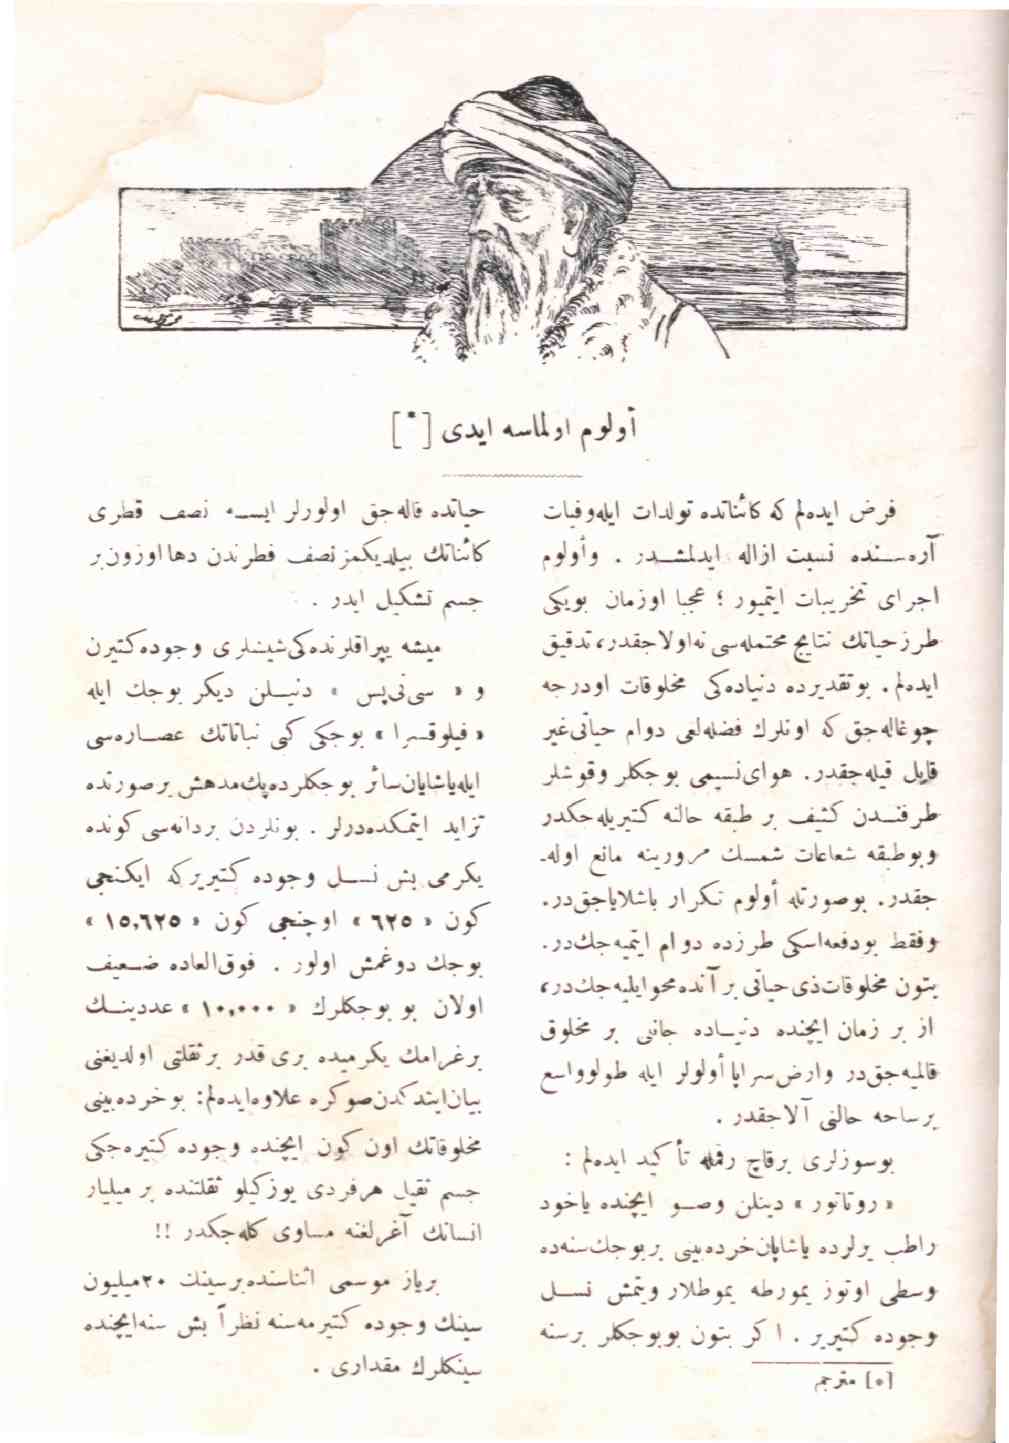 أولوم اولماسه ایدی [*]
فرض ایده‌لم که کائناتده تولدات ایله وفیات
آره‌سنده نسبت ازاله ایدلمشدر . وأولوم
اجرای تخریبات ایتمیور ؛ عجبا اوزمان بویکی
طرز حیاتك نتایج محتمله‌سی نه اولاجقدر، تدقیق
ایده‌لم. بو تقدیرده دنیاده‌کی مخلوقات اودرجه
چوغاله‌جق که اونلرك فضله‌لغی دوام حیاتی غیر
قابل قیله‌جقدر. هوای نسیمی بوجکلر وقوشلر
طرفندن کثیف بر طبقه حالنه کتیریله‌جکدر
وبوطبقه شعاعات شمسك مرورینه مانع اوله‌ـ
جقدر. بوصورتله أولوم تکرار باشلایاجق‌در.
وفقط بودفعه اسکی طرزده دوام ایتمیه‌جك‌در.
بتون مخلوقات ذی حیاتی بر آنده محو ایلیه‌جك‌در،
از بر زمان ایچنده دنیاده جانلی بر مخلوق
قالمیه‌جق‌در وارض سراپا أولولر ایله طولو واسع
بر ساحه حالنی آلاجقدر .
بوسوزلری برقاچ رقمله تأکید ایده‌لم :
« روتاتور » دینلن وصو ایچنده یاخود
راطب یرلرده یاشایان خرده‌بینی بربوجك سنه‌ده
وسطی اوتوز یمورطه یموطلار ویتمش نسل
وجوده کتیریر . اکر بتون بوبوجکلر برسنه
[*] مترجم
حیاتده قاله‌جق اولورلر ایسه نصف قطری
کائناتك بیلدیکمز نصف قطرندن دها اوزون بر
جسم تشکیل ایدر .
میشه یپراقلرنده‌کی شیشلری وجوده کتیرن
و « سی‌نی‌پس » دنیلن دیکر بوجك ایله
« فیلوقسرا » بوجکی کبی نباتاتك عصاره‌سی
ایله یاشایان سائر بوجکلرده پك مدهش بر صورتده
تزاید ایتمکده‌درلر . بونلردن بر دانه‌سی کونده
یکرمی بش نسل وجوده کتیریر که ایکنجی
کون « ٦٢٥ » اوچنجی کون « ١٥,٦٢٥ »
بوجك دوغمش اولور . فوق‌العاده ضعیف
اولان بو بوجکلرك « ١٠,٠٠٠ » عددینك
بر غرامك یکرمیده بری قدر بر ثقلتی اولدیغنی
بیان ایتدکدن صوکره علاوه ایده‌لم: بو خرده‌بینی
مخلوقاتك اون کون ایچنده وجوده کتیره‌جکی
جسم ثقیل هر فردی یوز کیلو ثقلتنده بر میلیار
انسانك آغرلغنه مساوی کله‌جکدر !!
بر یاز موسمی اثناسنده بر سینك ٢٠ میلیون
سینك وجوده کتیرمه‌سنه نظراً بش سنه ایچنده
سینکلرك مقداری .